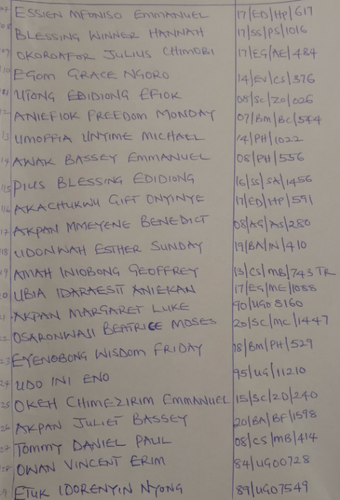 ESSIEN MFONISO EMMANUEL 17/ED/HP/617
BLESSING WINNER HANNAH 17/SS/PS/1016
OKOROAFOR JULIUS CHIMDRI 17/EG/AE/484
EGOM GRACE NGORO 14/EV/CS/376
UTONG EDIDIONG EFIOK 08/SC/ZO/026
ANIEFIOK FREEDOM MONDAY 07/BM/BC/544
UMOFFIA UNYIME MICHAEL 14/PH/1022
AWAK BASSEY EMMANUEL 08/PH/556
115 PIUS BLESSING EDIDIONG 16/SS/SA/1456
116 AKACHUKWU GIFT ONYINYE 17/ED/HP/591
AKPAN MMEYENE BENEDICT 08/AG/AS/280
UDONWAH ESTHER SUNDAY 19/BA/IN/410
AMAH INIOBONG GEOFFREY 13/CS/MB/743 TR
UBIA IDARAESIT ANIEKAN 17/EG/ME/1088
AKPAN MARGARET LUKE 90/UG0 8160
OSARONWAJI BEATRICE MOSES 20/SC/MC/1447
EYENOBONG WISDOM FRIDAY 18/BM/PH/529
UDO INI ENO 95/US/11210
OKEH CHIMEZIRIM EMMANUEL 15/SC/ZO/240
AKPAN JULIET BASSEY 20/BA/BF/1598
TOMMY DANIEL PAUL 08/CS/MB/414
OWAN VINCENT ERIM 84/UG00728
ETUK IDORENYIN NYONG 89/UG07549